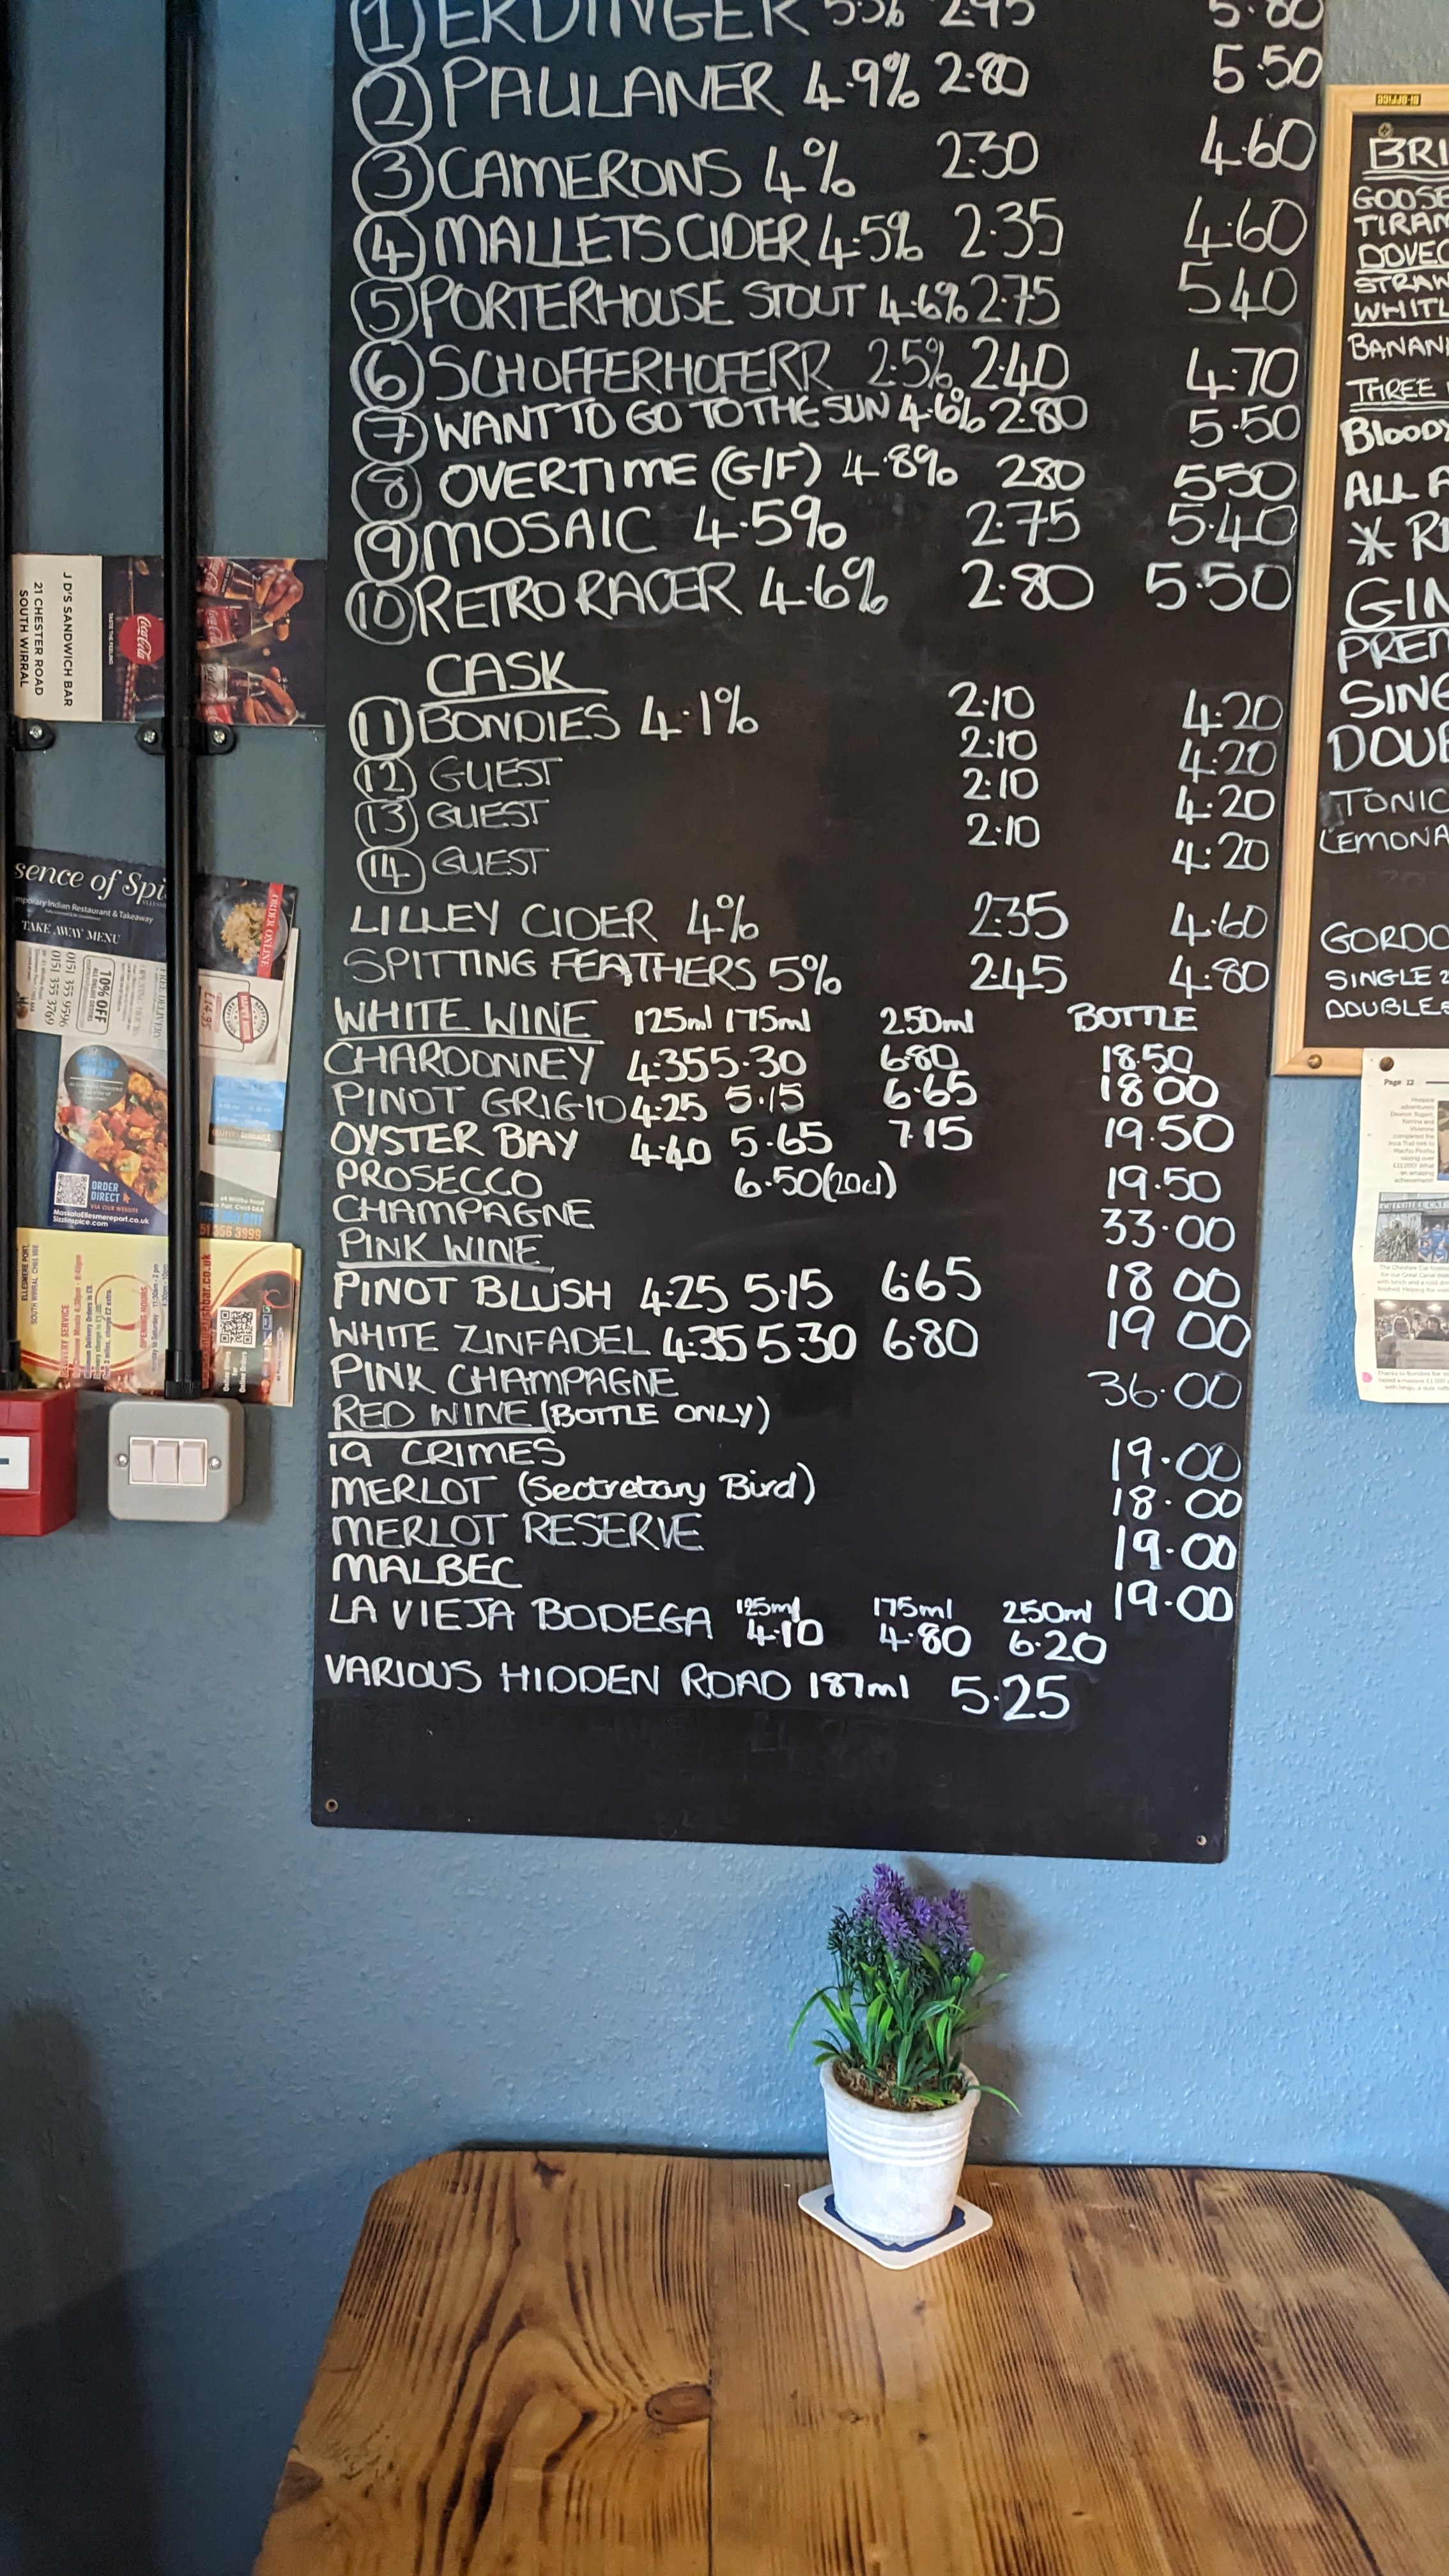 ① ERDINGER 5.3% 2.95 5.80
② PAULANER 4.9% 2.80 5.50
③ CAMERONS 4% 2.30 4.60
④ MALLETS CIDER 4.5% 2.35 4.60
⑤ PORTERHOUSE STOUT 4.6% 2.75 5.40
⑥ SCHOFFERHOFERR 2.5% 2.40 4.70
⑦ WANT TO GO TO THE SUN 4.6% 2.80 5.50
⑧ OVERTIME (G/F) 4.8% 280 550
⑨ MOSAIC 4.5% 2.75 5.40
⑩ RETRO RACER 4.6% 2.80 5.50
CASK
⑪ BONDIES 4.1% 2.10 4.20
⑫ GUEST 2.10 4.20
⑬ GUEST 2.10 4.20
⑭ GUEST 2.10 4.20
LILLEY CIDER 4% 2.35 4.60
SPITTING FEATHERS 5% 2.45 4.80
WHITE WINE 125ml 175ml 250ml BOTTLE
CHARDONNEY 4.35 5.30 6.80 18.50
PINOT GRIGIO 4.25 5.15 6.65 18.00
OYSTER BAY 4.40 5.65 7.15 19.50
PROSECCO 6.50 (20cl) 19.50
CHAMPAGNE 33.00
PINK WINE
PINOT BLUSH 4.25 5.15 6.65 18 00
WHITE ZINFADEL 4.35 5.30 6.80 19 00
PINK CHAMPAGNE 36.00
RED WINE (BOTTLE ONLY)
19 CRIMES 19.00
MERLOT (Sectretary Bird) 18.00
MERLOT RESERVE 19.00
MALBEC 19.00
125ml 175ml 250ml
LA VIEJA BODEGA 4.10 4.80 6.20
VARIOUS HIDDEN ROAD 187ml 5.25
BI-OFFICE
BRI
GOOSE
TIRAM
DOVEC
STRAW
WHITL
BANAN
THREE
Bloody
ALL F
* R
GIN
PREM
SING
DOUB
TONIC
LEMONA
GORDO
SINGLE 2
DOUBLE
Page 12
J D'S SANDWICH BAR
21 CHESTER ROAD
SOUTH WIRRAL
Coca-Cola
TASTE THE FEELING
sence of Spi
mporary Indian Restaurant & Takeaway
TAKE AWAY MENU
ORDER ONLINE
0151 355 9596
0151 355 3769
10% OFF
FREE DELIVERY
£14.95
ORDER
DIRECT
VIA OUR WEBSITE
MassalaEllesmereport.co.uk
Sizzlnspice.com
51 356 3999
ELLESMERE PORT,
SOUTH WIRRAL
OPENING HOURS